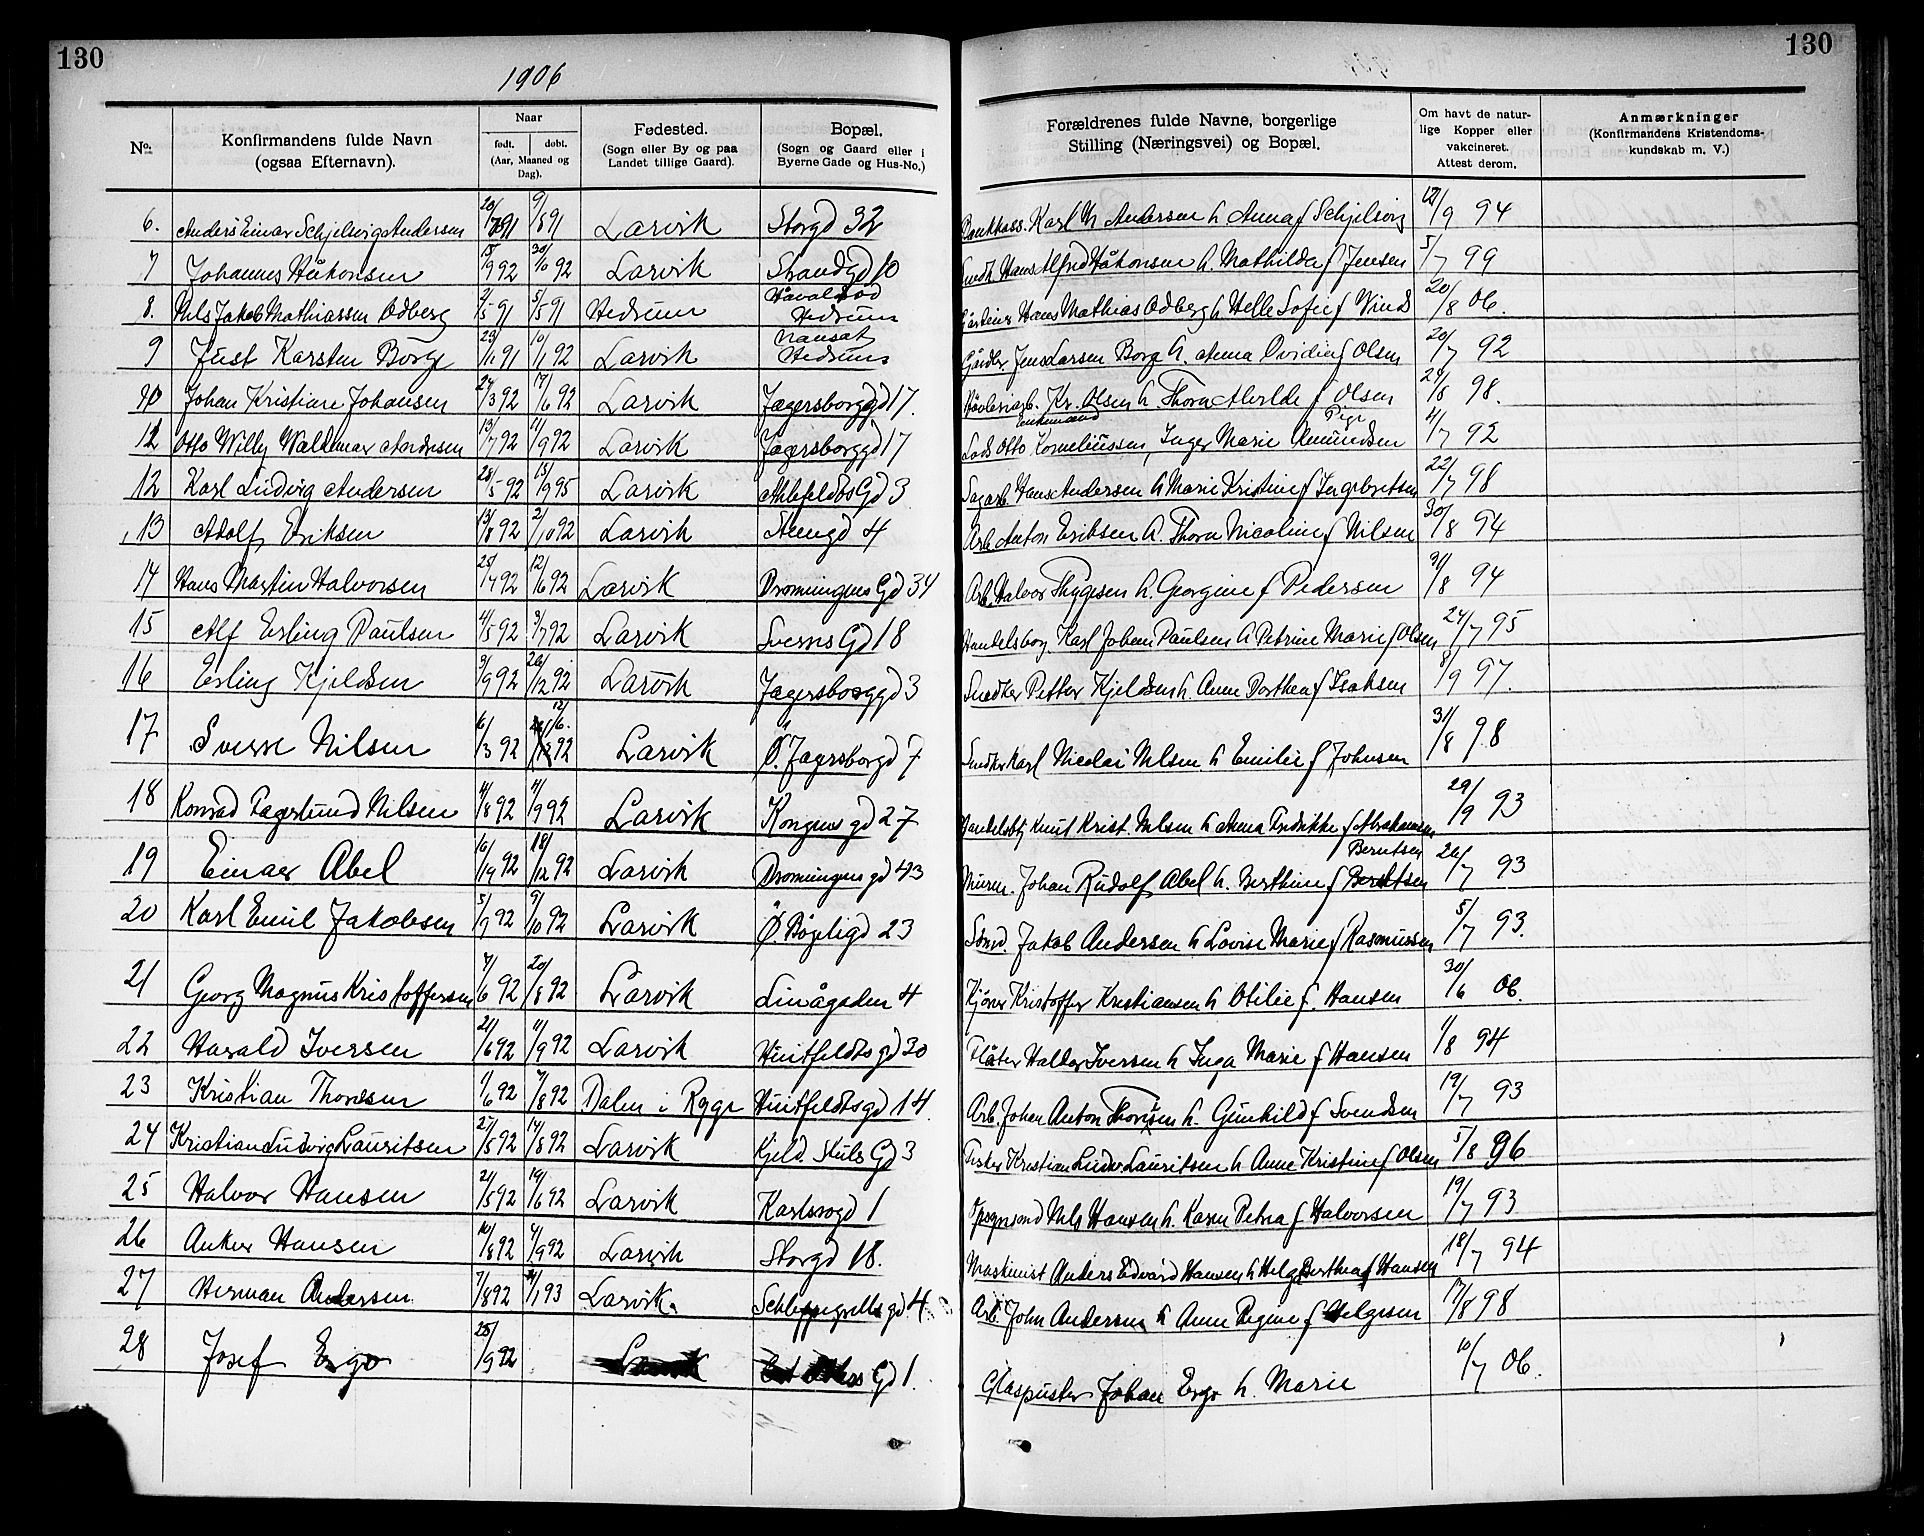 130
130
1906
No.
Konfirmandens fulde Navn (ogsaa Efternavn).
Naar
født. døbt.
(Aar, Maaned og Dag).
Fødested.
(Sogn eller By og paa Landet tillige Gaard).
Bopæl.
(Sogn og Gaard eller i Byerne Gade og Hus-No.)
Forældrenes fulde Navne, borgerlige Stilling (Næringsvei) og Bopæl.
Om havt de naturlige Kopper eller vakcineret. Attest derom.
Anmærkninger
(Konfirmandens Kristendomskundskab m. V.)
6. Anders Einar Schjelvig Andersen 9/8 91 Larvik Storgd 32 Karl M Andersen h Anna f Schjelvig 12/9 94
7 Johannes Håkonsen 15/9 92 30/10 92 Larvik Strandgd 10 Snedk. Hans Alfred Håkonsen h. Mathilda f Jensen 5/7 99
8. Nils Jakob Mathiassen Odberg 2/5 91 5/5 91 Hedrum Hedrum Hans Mathias Odberg h Helle Sofie f Vind 20/8 06.
9 Just Karsten Borge 23/11 91 10/1 92 Larvik Nansæt Hedrum Gårdbr Jens Larsen Borge h. Anna Ovidia f Olsen 20/7 92
10 Johan Kristian Johansen 27/3 92 17/6 92 Larvik Jægersborggd 17. Høvleriarb. Kr. Olsen h. Thora Alvilde f Olsen 29/8 98.
12 Otto Willy Waldemar Andresen 13/7 92 11/9 92 Larvik Jægersborggd 17 Lods Otto Korneliussen, enkemand Inger Marie Amundsen Pige 4/7 92
12 Karl Ludvig Andersen 28/5 92 15/9 95 Larvik Ahlefeldts Gd 3 Sagarb. Hans Andersen h Marie Kristine f Ingebretsen 22/7 98
13 Adolf Eriksen 13/8 92 2/10 92 Larvik Stengd 4 Arb Anton Eriksen h. Thora Nicoline f Nilsen 30/8 94
14 Hans Martin Halvorsen 25/4 92 12/6 92 Larvik Dronningens Gd 34 Arb. Halvor Thygesen h. Georgine f Pedersen 31/8 94
15 Alf Erling Paulsen 4/5 92 3/7 92 Larvik Sverres Gd 18 Handelsbog. Karl Johan Paulsen h Petrine Marie f Olsen 24/7 95
16 Erling Kjeldsen 3/9 92 26/12 92 Larvik Jægersborggd 3 Snedker Petter Kjeldsen h. Anne Dorthea f Isaksen 8/9 97.
17 Sverre Nilsen 6/3 92 12/6. 92 Larvik Ø. Jægersborgd 7 Snedker Karl Nicolai Nilsen h Emilie f Johnsen 31/8 98
18 Konrad Fagerlund Nilsen 4/8 92 11/9 92 Larvik Kongens gd 27 Handelsbtj Knut Krist. Nilsen h Anna Fredrikke f Abrahamsen 29/9 93
19 Einar Abel 10/9 92 18/12 92 Larvik Dronningens gd 43 Murer. Johan Rudolf Abel h. Berthine f Berntsen 26/7 93
20 Karl Emil Jakobsen 5/9 92 9/10 92 Larvik Ø. Bøjeligd 23 Sømd. Jakob Andersen h Lovise Marie f Rasmussen 5/7 93.
21 Georg Magnus Kristoffersen 7/6 92 20/8 92 Larvik Linågaden 4 Kjører Kristoffer Kristiansen h Otilie f. Hansen 30/6 06.
22 Harald Iversen 21/6 92 11/9 92 Larvik Huitfeldts gd 30 Flåter Haldor Iversen h Inga Marie f Hansen 1/8 94
23 Kristian Thoresen 1/6 92 7/8 92 Dalen i Rygge Huitfeldts gd 14 Arb. Johan Anton Thoresen h. Gunhild f Svendsen 19/7 93
24 Kristian Ludvig Lauritsen 27/5 92 14/8 92 Larvik Kjeld. Stubs Gd 3 Fisker Kristian Ludv Lauritsen h Anne Kristine f Olsen 5/8 96
25 Halvor Hansen 21/5 92 19/6 92 Larvik Karlsrogd 1 Nils Hansen h. Karen Petrea f Halvorsen 19/7 93
26 Anker Hansen 10/8 92 4/9 92 Larvik Storgd 18. Maskinist Anders Edvard Hansen h Helga Berthea f Hansen 18/7 94
27 Herman Andersen 7/8 92 1/1 93 Larvik. Schleppegrells gd 4 Arb. John Andersen h Anne Regine f Helgesen 17/8 98
28 Josef Ergo 25/9 92 Larvik Gd 1. Glaspuster Johan Ergo h. Marie 10/7 06.